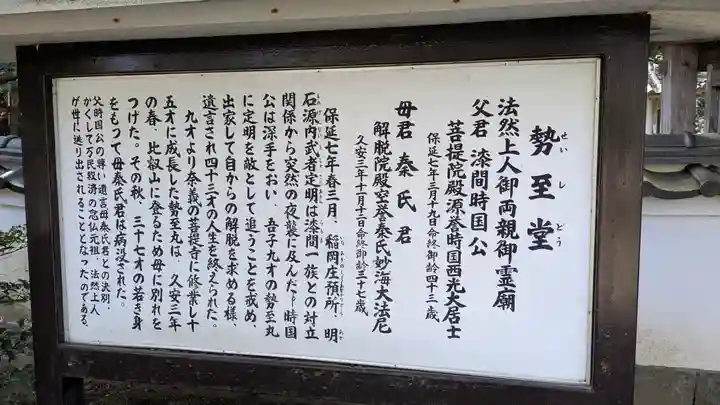 勢至堂
せいしどう
法然上人御両親御霊廟
父君 漆間時国公
菩提院殿源誉時国西光大居士
保延七年三月十九日命終御齢四十三歳
母君 秦氏君
解脱院殿空誉秦氏妙海大法尼
久安三年十一月十二日命終御齢三十七歳
保延七年春三月、稲岡庄預所、明
石源内武者定明は漆間一族との対立
関係から突然の夜襲に及んだ。時国
公は深手をおい、吾子九才の勢至丸
に定明を敵として追うことを戒め、
出家して自からの解脱を求める様、
遺言され四十三才の人生を終えられた。
九才より奈義の菩提寺に修業し十
五才に成長した勢至丸は、久安三年
の春、比叡山に登るため母に別れを
つげた。その秋、三十七才の若き身
をもって母秦氏君は病没された。
父時国公の尊い遺言母秦氏君との決別、
かくして万民救済の念仏元祖、法然上人
が世に送り出されることとなったのである。